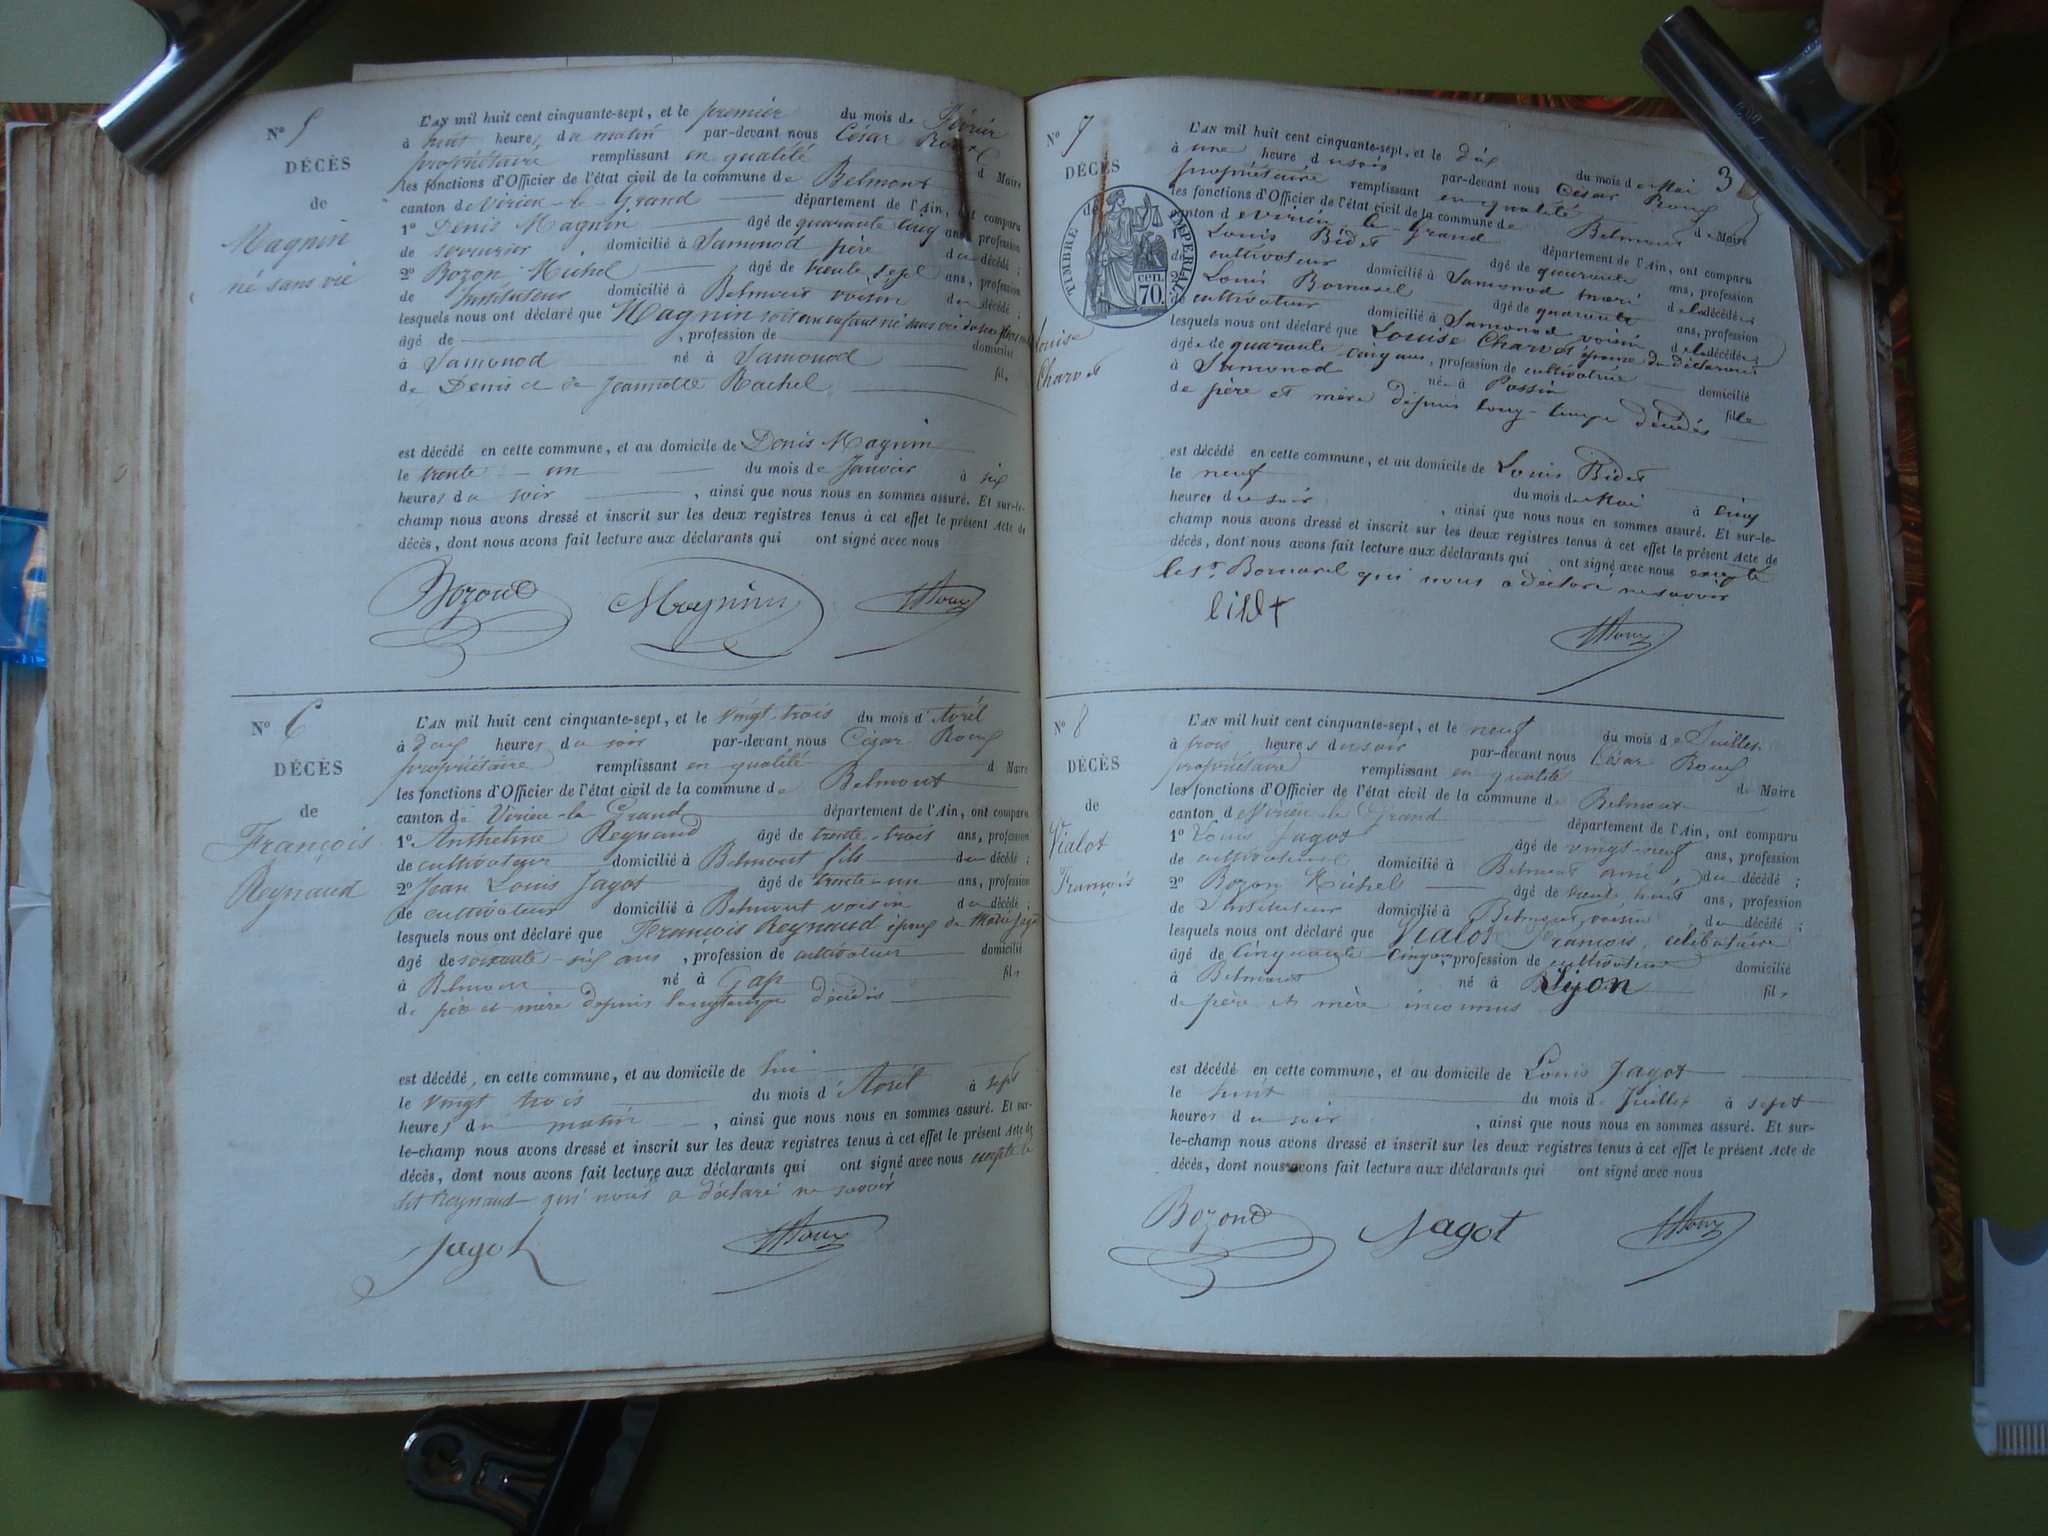 N° 5
DÉCÈS
de
Magnin
né sans vie
L'AN mil huit cent cinquante-sept, et le premier du mois de Février
à huit heures du matin par-devant nous César Roux
propriétaire remplissant en qualité de Maire
les fonctions d'Officier de l'état civil de la commune de Belmont
canton de Virieu-le-Grand département de l'Ain, ont comparu
1° Denis Magnin âgé de quarante cinq ans, profession
de serrurier domicilié à Samonod père du décédé ;
2° Bozon Michel âgé de trente sept ans, profession
de Instituteur domicilié à Belmont voisin du décédé ;
lesquels nous ont déclaré que Magnin soit un enfant né sans vie du sexe
âgé de , profession de domicilié
à Samonod né à Samonod fils
de Denis et de Jeannette Rachel
est décédé en cette commune, et au domicile de Denis Magnin
le trente-un du mois de Janvier à six
heures du soir , ainsi que nous nous en sommes assuré. Et sur-le-
champ nous avons dressé et inscrit sur les deux registres tenus à cet effet le présent Acte de
décès, dont nous avons fait lecture aux déclarants qui ont signé avec nous
Bozond Magnin Roux
N° 6
DÉCÈS
de
François
Reynaud
L'AN mil huit cent cinquante-sept, et le vingt-trois du mois d'Avril
à deux heures du soir par-devant nous César Roux
propriétaire remplissant en qualité d Maire
les fonctions d'Officier de l'état civil de la commune de Belmont
canton de Virieu-le-Grand département de l'Ain, ont comparu
1° Anthelme Reynaud âgé de trente-trois ans, profession
de cultivateur domicilié à Belmont fils du décédé ;
2° Jean Louis Jagot âgé de trente-un ans, profession
de cultivateur domicilié à Belmont voisin du décédé ;
lesquels nous ont déclaré que François Reynaud époux de Marie Jagot
âgé de soixante-six ans , profession de cultivateur domicilié
à Belmont né à Gap fils
de père et mère depuis longtemps décédés
est décédé, en cette commune, et au domicile de lui
le vingt trois du mois d'Avril à sept
heures du matin , ainsi que nous nous en sommes assuré. Et sur-
le-champ nous avons dressé et inscrit sur les deux registres tenus à cet effet le présent Acte de
décès, dont nous avons fait lecture aux déclarants qui ont signé avec nous excepté le
dit Reynaud qui nous a déclaré ne savoir
Jagot Roux
3
N° 7
DÉCÈS
de
Louise
Charvet
TIMBRE IMPERIAL
CEN.
70.
L'AN mil huit cent cinquante-sept, et le dix du mois de Mai
à une heure du soir par-devant nous César Roux
propriétaire remplissant en qualité de Maire
les fonctions d'Officier de l'état civil de la commune de Belmont
canton de Virieu-le-Grand département de l'Ain, ont comparu
Louis Bidet âgé de quarante ans, profession
de cultivateur domicilié à Samonod mari de la décédée ;
2° Louis Bornarel âgé de quarante ans, profession
de cultivateur domicilié à Samonod voisin de la décédée ;
lesquels nous ont déclaré que Louise Charvet épouse du déclarant
âgée de quarante-cinq ans, profession de cultivatrice domicilié
à Samonod née à Passin fille
de père et mère depuis long-temps décédés
est décédé en cette commune, et au domicile de Louis Bidet
le neuf du mois de Mai à cinq
heures du soir , ainsi que nous nous en sommes assuré. Et sur-le-
champ nous avons dressé et inscrit sur les deux registres tenus à cet effet le présent Acte de
décès, dont nous avons fait lecture aux déclarants qui ont signé avec nous excepté
le sr. Bornarel qui nous a déclaré ne savoir
Roux
N° 8
DÉCÈS
de
Vialot
François
L'AN mil huit cent cinquante-sept, et le neuf du mois de Juillet
à trois heures du soir par-devant nous César Roux
propriétaire remplissant en qualité de Maire
les fonctions d'Officier de l'état civil de la commune de Belmont
canton de Virieu-le-Grand département de l'Ain, ont comparu
1° Louis Jagot âgé de vingt-neuf ans, profession
de cultivateur domicilié à Belmont ami du décédé ;
2° Bozon Michel âgé de trente huit ans, profession
de Instituteur domicilié à Belmont voisin du décédé ;
lesquels nous ont déclaré que Vialot François, célibataire
âgé de cinquante-cinq ans, profession de cultivateur domicilié
à Belmont né à Lyon fils
de père et mère inconnus
est décédé en cette commune, et au domicile de Louis Jagot
le huit du mois de Juillet à sept
heures du soir , ainsi que nous nous en sommes assuré. Et sur-
le-champ nous avons dressé et inscrit sur les deux registres tenus à cet effet le présent Acte de
décès, dont nous avons fait lecture aux déclarants qui ont signé avec nous
Bozond Jagot Roux